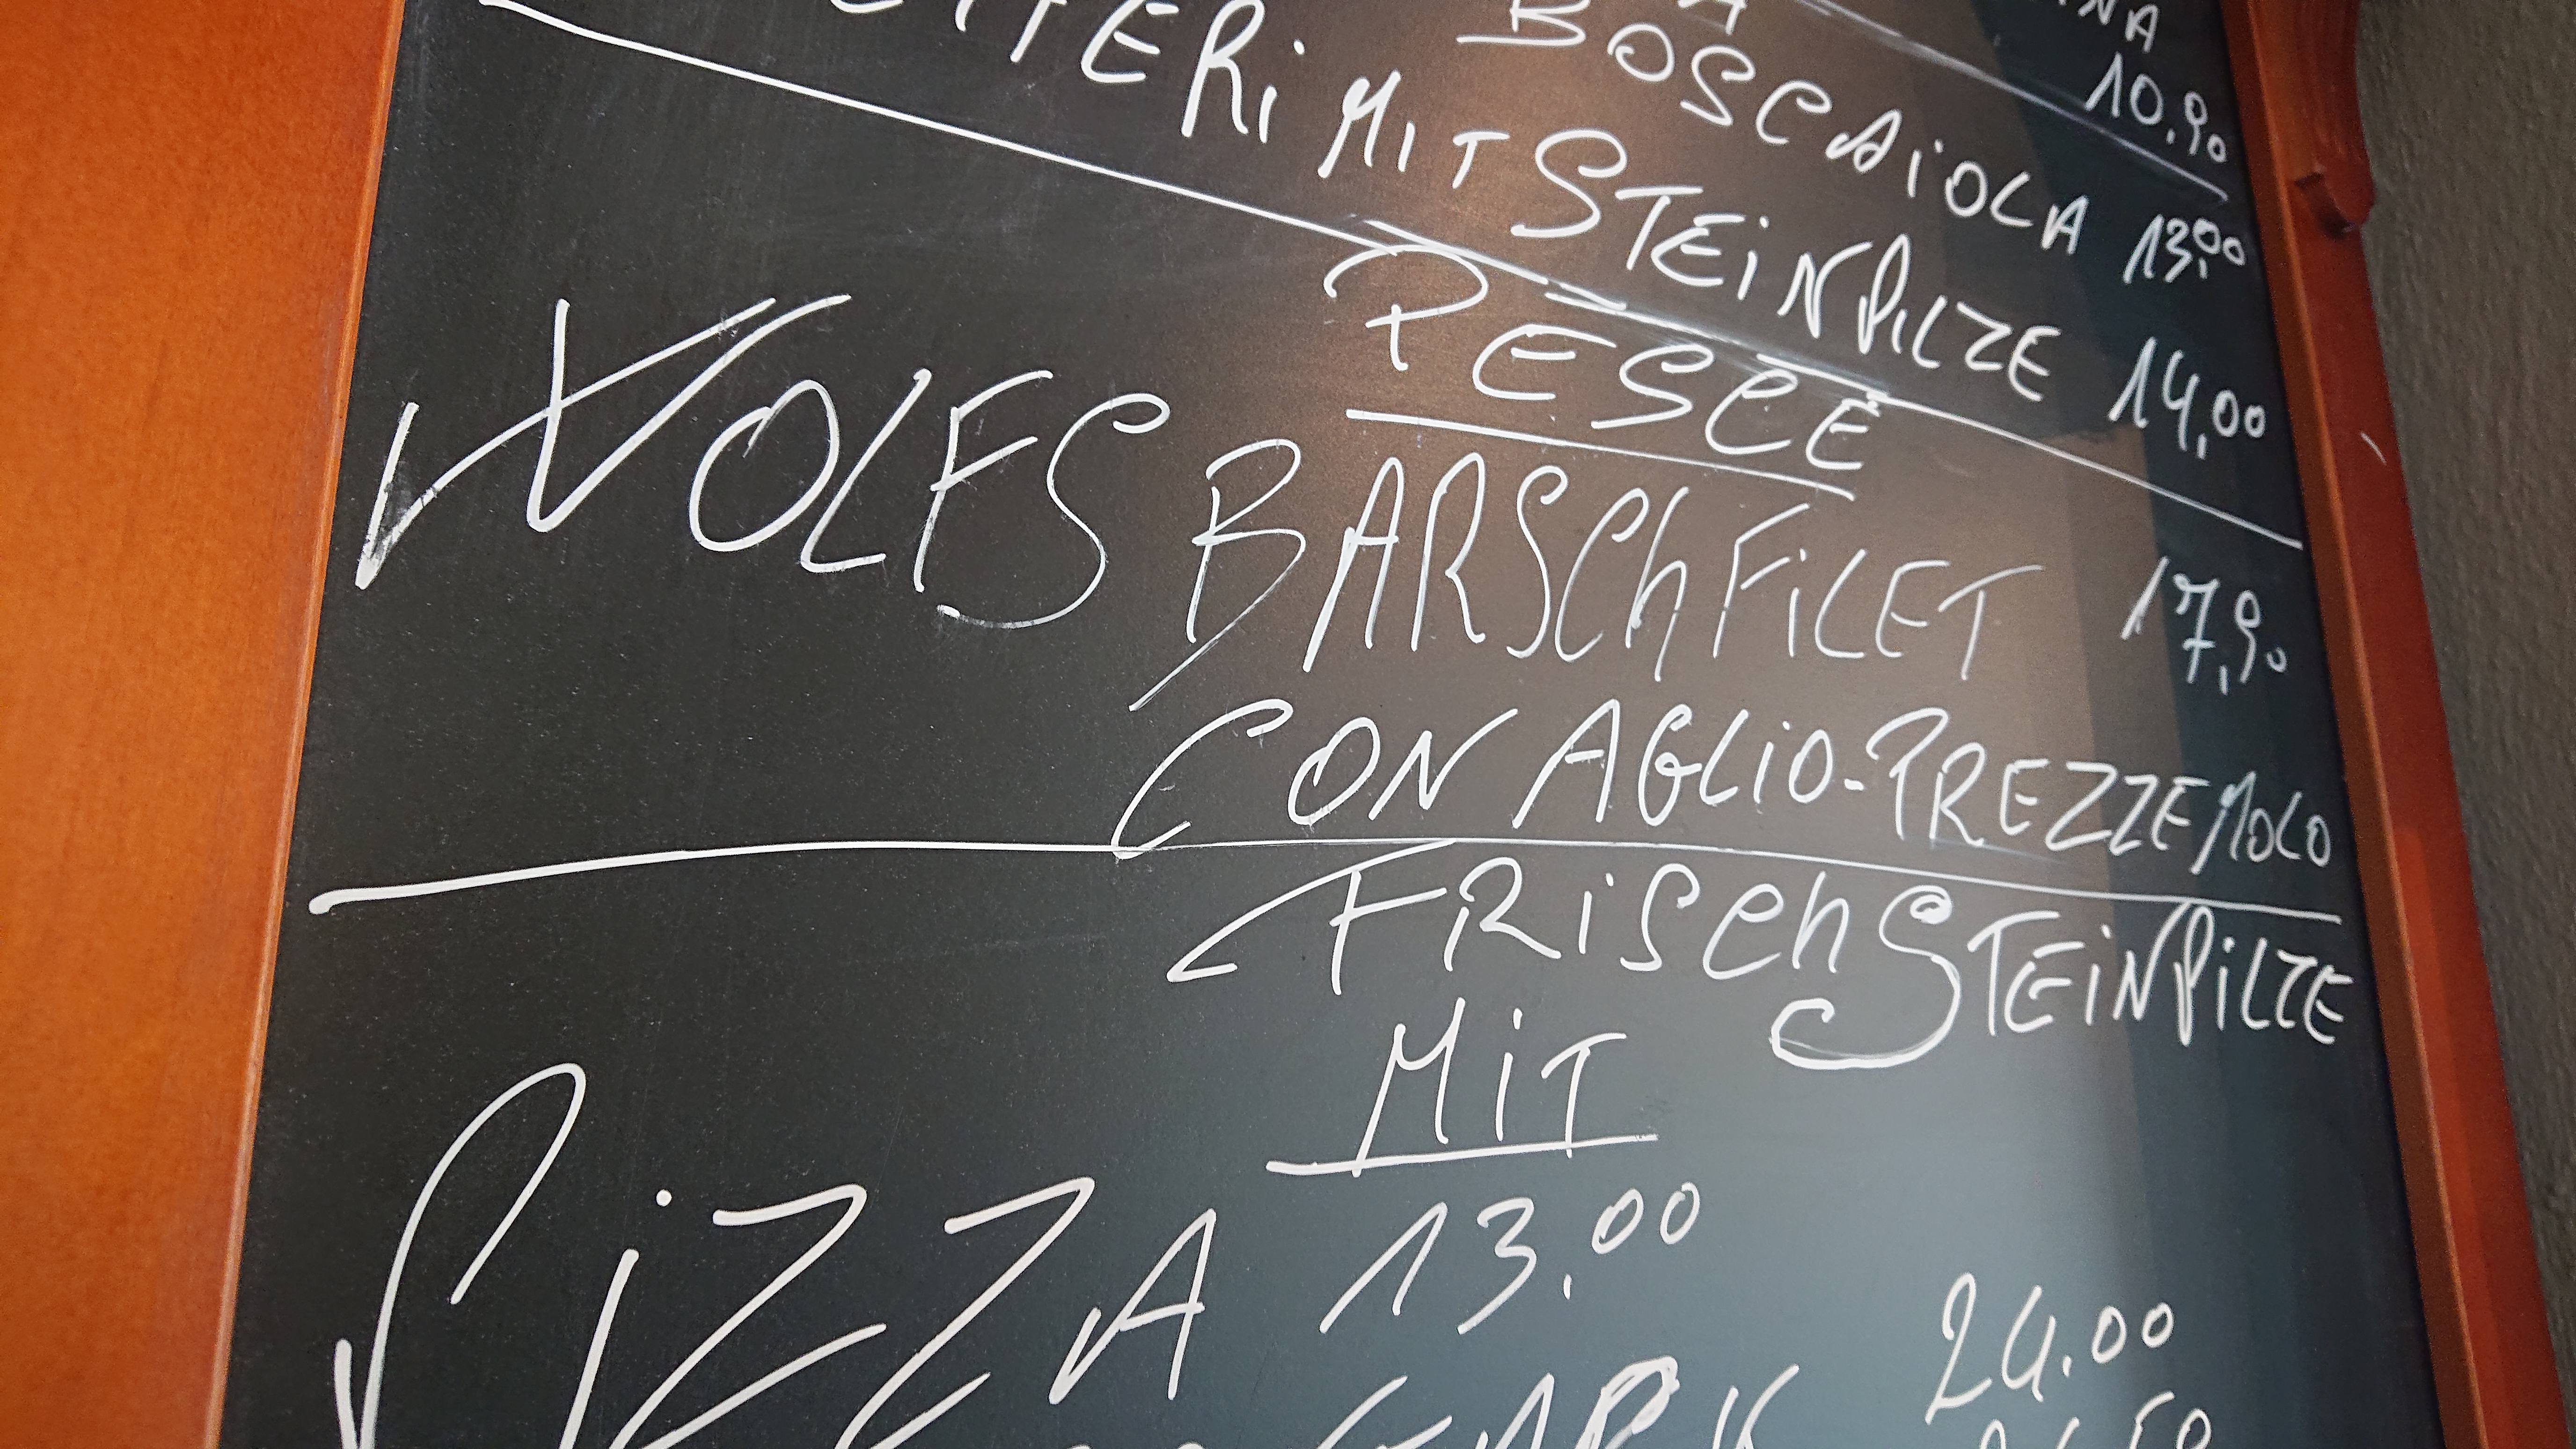 10,90
BOSCAiOLA 13,00
MiT STEiNPiLZE 14,00
PESCE
WOLFSBARSChFiLET 17,90
CON AGLiO-PREZZEMOLO
FRiSCh STEiNPiLZE
MiT
PiZZA 13,00
24.00